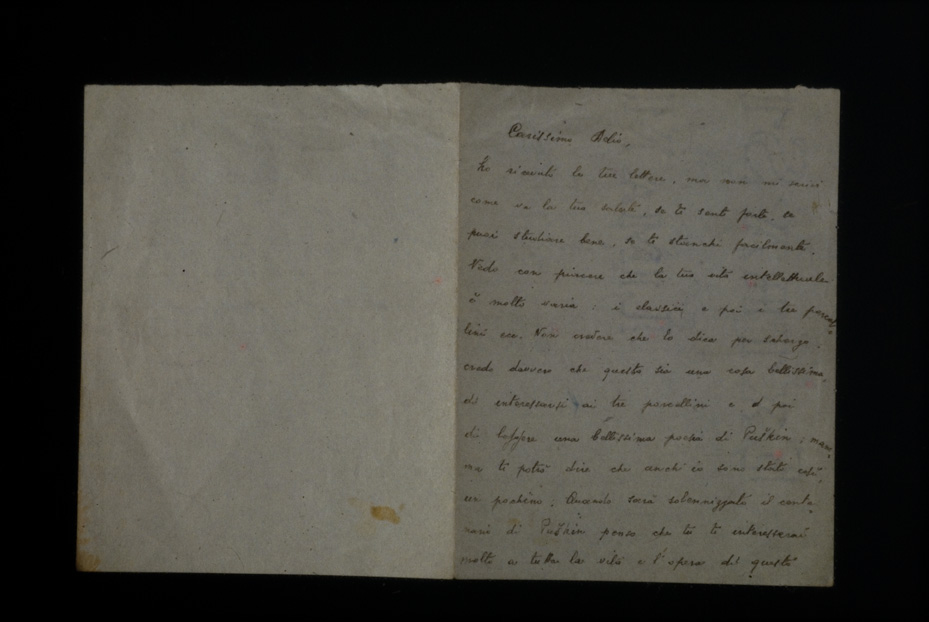 Carissimo Delio,
ho ricevuto le tue lettere, ma non mi scrivi
come va la tua salute, se ti senti forte, se
puoi studiare bene, se ti stanchi facilmente.
Vedo con piacere che la tua vita intellettuale
è molto varia: i classici e poi i tre porcel
lini ecc. Non credere che lo dica per
credo davvero che questa sia una cosa bellissima,
di interessarsi ai tre porcellini e poi
di leggere una bellissima poesia di Puškin; mam
ma ti potrà dire che anch'io sono stato così,
un pochino. Quando sarà solennizzato il cente
nario di Puškin penso che tu ti interesserai
molto a tutta la vita e l'opera di questo